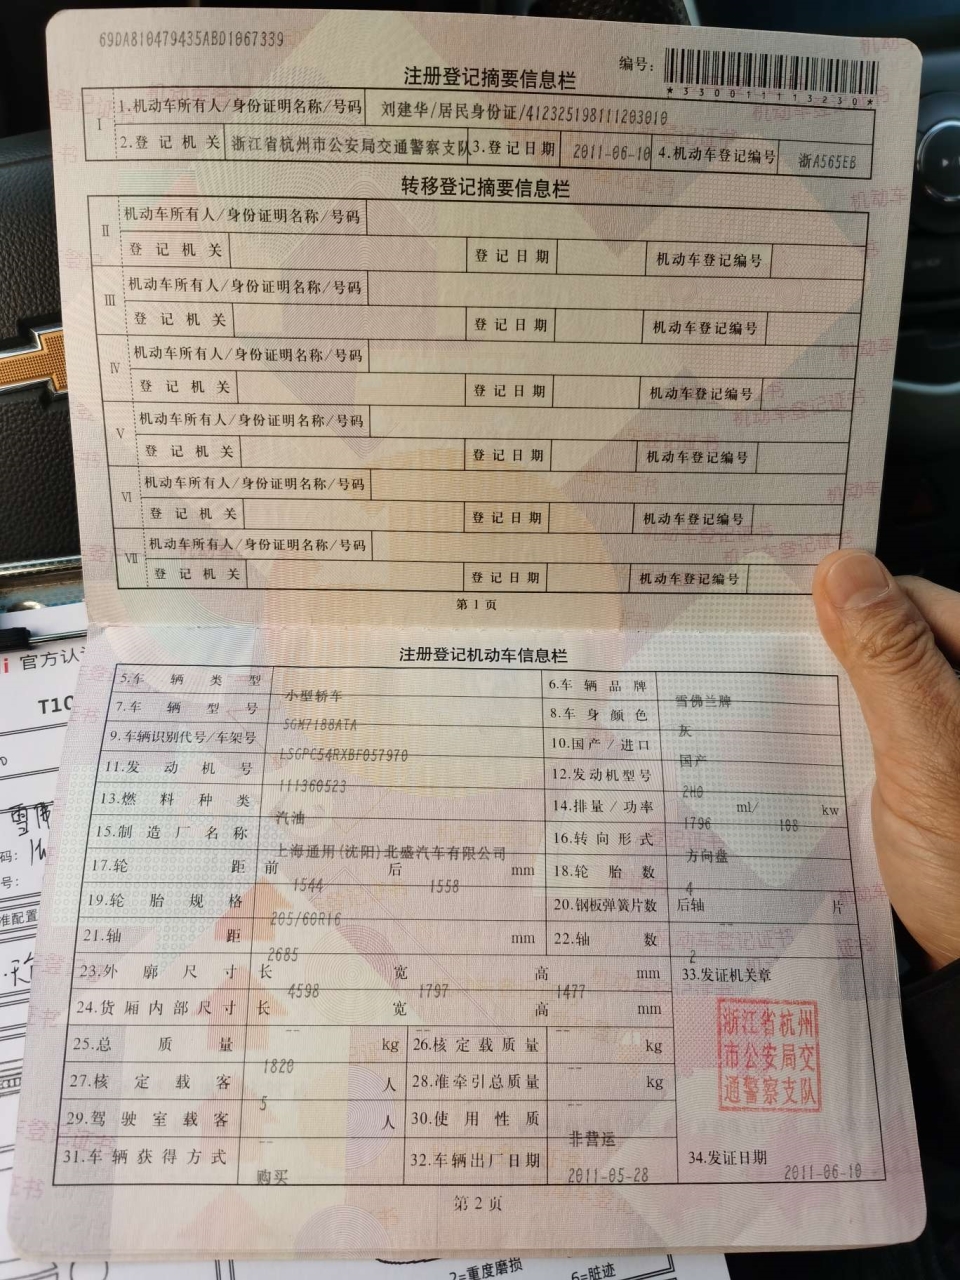 69DA810479435ABD1067339
编号：
*330011113230*
注册登记摘要信息栏
I 1.机动车所有人/身份证明名称/号码 刘建华/居民身份证/412325198111203010
2.登记机关 浙江省杭州市公安局交通警察支队 3.登记日期 2011-06-10 4.机动车登记编号 浙A565EB
转移登记摘要信息栏
II 机动车所有人/身份证明名称/号码
登记机关 登记日期 机动车登记编号
III 机动车所有人/身份证明名称/号码
登记机关 登记日期 机动车登记编号
IV 机动车所有人/身份证明名称/号码
登记机关 登记日期 机动车登记编号
V 机动车所有人/身份证明名称/号码
登记机关 登记日期 机动车登记编号
VI 机动车所有人/身份证明名称/号码
登记机关 登记日期 机动车登记编号
VII 机动车所有人/身份证明名称/号码
登记机关 登记日期 机动车登记编号
第1页
注册登记机动车信息栏
5.车辆类型 小型轿车 6.车辆品牌 雪佛兰牌
7.车辆型号 SGM7188ATA 8.车身颜色 灰
9.车辆识别代号/车架号 LSGPC54RXBF057970 10.国产/进口 国产
11.发动机号 111360523 12.发动机型号 2H0
13.燃料种类 汽油 14.排量/功率 1796 ml/ 108 kw
15.制造厂名称 上海通用(沈阳)北盛汽车有限公司 16.转向形式 方向盘
17.轮距 前 1544 后 1558 mm 18.轮胎数 4
19.轮胎规格 205/60R16 20.钢板弹簧片数 后轴 -- 片
21.轴距 2685 mm 22.轴数 2
23.外廓尺寸 长 4598 宽 1797 高 1477 mm 33.发证机关章
24.货厢内部尺寸 长 -- 宽 -- 高 -- mm
浙江省杭州
市公安局交
通警察支队
25.总质量 1820 kg 26.核定载质量 -- kg
27.核定载客 5 人 28.准牵引总质量 -- kg
29.驾驶室载客 -- 人 30.使用性质 非营运
31.车辆获得方式 购买 32.车辆出厂日期 2011-05-28 34.发证日期 2011-06-10
第2页
官方认
准配置
2=重度磨损
6=脏迹